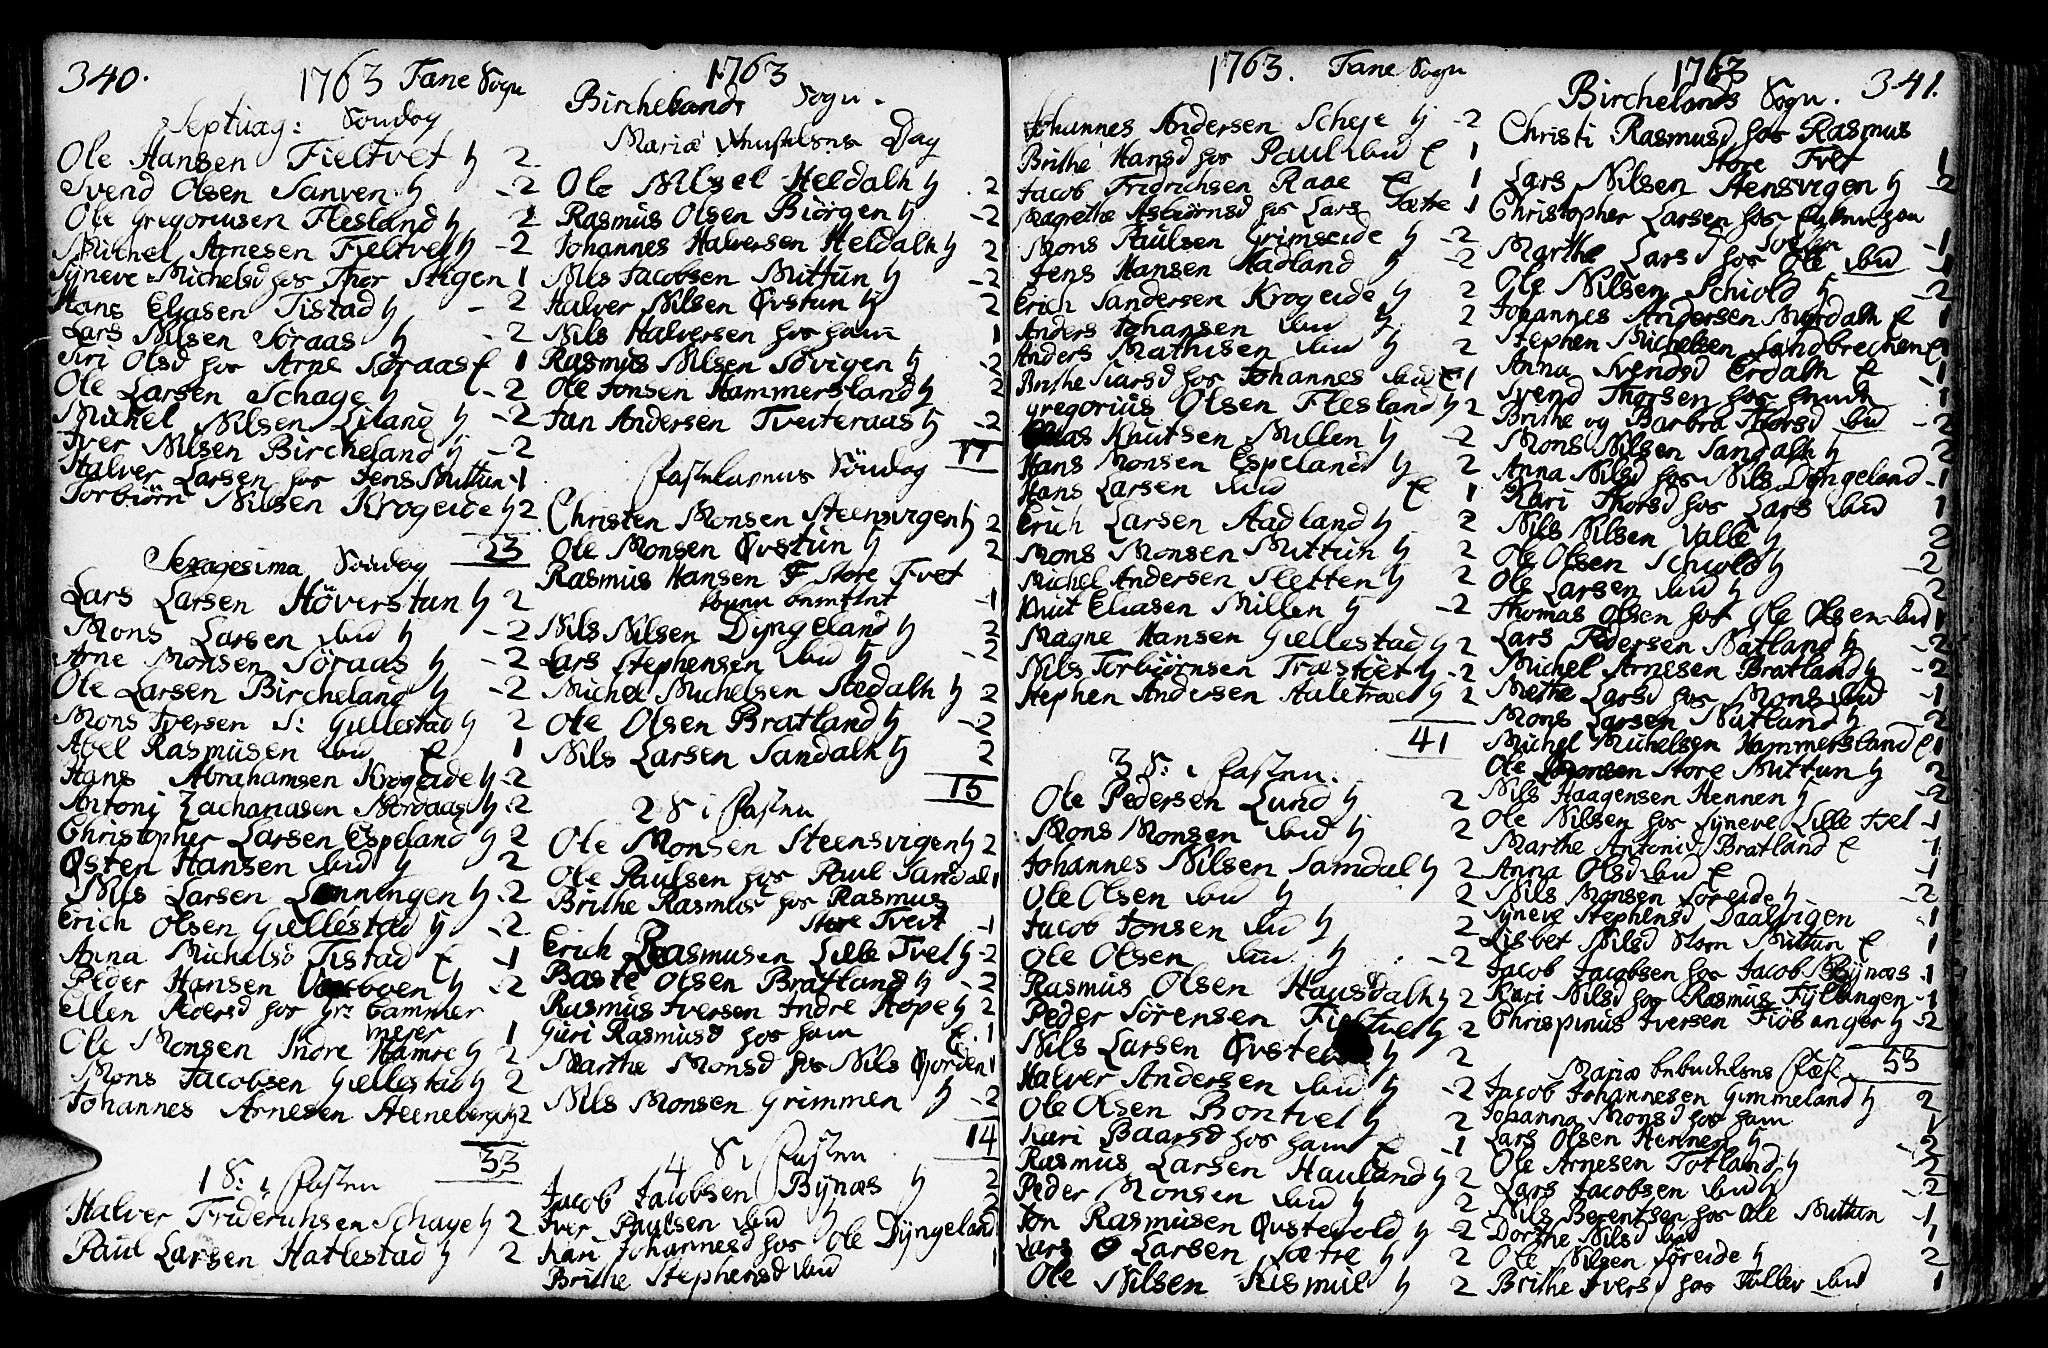 340.
1763 Fane Sogn
Septuag: Søndag
Ole Hansen Fieltvet h 2
Svend Olsen Sanven h - 2
Ole Gregoriusen Flesland h 2
Michel Arnesen Fieltvet h - 2
Syneve Michelsd hos Thor Stigen 1
Hans Eliasen Tistad h - 2
Lars Nilsen Søraas h - 2
Siri Olsd hos Arne Søraas E 1
Ole Larsen Schage h - 2
Michel Nilsen Liland h - 2
Iver Nilsen Bircheland h - 2
Halver Larsen hos Jens Mittun - 1
Torbiørn Nilsen Krogeide h 2
23
Sexagesima Søndag
Lars Larsen Høverstun h 2
Mons Larsen ibid h - 2
Arne Monsen Søraas h - 2
Ole Larsen Bircheland h - 2
Mons Iversen S: Giellestad h 2
Abel Rasmusen ibid E 1
Hans Abrahamsen Krogeide h - 2
Antoni Zachariasen Nordaas h - 2
Christopher Larsen Espeland h 2
Østen Hansen ibid h 2
Nils Larsen Lønningen h - 2
Erich Olsen Giellestad h - 2
Anna Michelsd Tistad E - 1
Peder Hansen h - 2
Ellen Pedersd hos Hr: Cammer
merer 1
Ole Monsen Indre Hamre h 2
Mons Jacobsen Giellestad h 2
Johannes Arnesen Steeneberg h 2
33
1 S: i Fasten
Halver Friderichsen Schage h 2
Paul Larsen Hatlestad h 2
1763
Birchelands Sogn.
Mariæ Dag
Ole Nilsel Heldalh h . 2
Rasmus Olsen Biørgen h - 2
Johannes Halversen Heldalh h 2
Nils Jacobsen Mittun h - 2
Halver Nilsen Øvstun h 2
Nils Halversen hos ham 1
Rasmus Nilsen Søvigen h - 2
Ole Jonsen Hammersland h 2
Jan Andersen Tveiteraas h - 2
17
Fastelavns Søndag
Christen Monsen Steensvigen h 2
Ole Monsen Øvstun h 2
Rasmus Hansen F Store Tvet
- 1
Nils Nilsen Dyngeland h 2
Lars Stephensen ibid h - 2
Michel Michelsen Stedalh h 2
Ole Olsen Bratland h - 2
Nils Larsen Sandalh h 2
15
2 S i Fasten
Ole Monsen Steensvigen h 2
Ole Paulsen hos Paul Sandal 1
Brithe Rasmusd hos Rasmus
Store Tveit - 1
Erich Rasmusen Lille Tvet h - 2
Baste Olsen Bratland h - 2
Rasmus Iversen Indre Hope h 2
Guri Rasmusd hos ham E . 1
Marthe Monsd hos Nils 1
Nils Monsen Grimmen h - 2
14
4 S i Fasten
Jacob Jacobsen Bynæs h 2
Iver Paulsen ibid h 2
Kari Johannesd hos Ole Dyngeland
Brithe Stephensd ibid 1
1763. Fane Sogn
Johannes Andersen Scheje h - 2
Brithe Hansd hos Paul ibid E 1
Jacob Fridrichsen Raae E 1
Magrethe Asbiørnsd hos Lars Sætre 1
Mons Paulsen Grimseide h - 2
Jens Hansen Hadland h - 2
Erich Sandersen Krogeide h 2
Anders Johansen ibid h 2
Anders Mathisen ibid h 2
Brithe Siursd hos Johannes ibid E 1
Gregorius Olsen Flesland h 2
Knutsen Millen h - 2
Hans Monsen Espeland h 2
Hans Larsen ibid E 1
Erich Larsen Aadland h 2
Mons Monsen Mittun h 2
Michel Andersen Sletten h 2
Knut Eliasen Millen h - 2
Magne Hansen Giellestad h 2
Nils Torbiørnsen Træstøet h - 2
Stephen Andersen Aaletræet h 2
41
3 S: i Fasten.
Ole Pedersen Lund h 2
Mons Monsen ibid h 2
Johannes Nilsen Samdal h 2
Ole Olsen ibid h 2
Jacob Jonsen ibid h 2
Ole Olsen ibid h - 2
Rasmus Olsen Hausdalh h 2
Peder Sørensen h 2
Nils Larsen h 2
Halver Andersen ibid h - 2
Ole Olsen Bontvet h 2
Kari Baarsd hos ham E - 1
Rasmus Larsen Hauland h 2
Peder Monsen ibid h 2
Jon Rasmusen Øvstevold h - 2
Lars Larsen Sætre h 2
Ole Nilsen Rismul h 2
1763 341.
Birchelands Sogn.
Christi Rasmusd hos Rasmus
Store Tvet 1
Lars Nilsen Stensvigen h 2
Christopher Larsen hos
- 1
Marthe Larsd hos Ole ibid - 1
Ole Nilsen Schiold h - 2
Johannes Andersen Mørdalh E 1
Stephen Michelsen Sandbrecken E 1
Anna Svendsd Erdalh E - 1
Svend Thorsen hos 1
Brithe og Barbra Thorsd ibid - 2
Mons Nilsen Sandalh h 2
Anna Nilsd hos Nils Dyngeland - 1
Kari Thorsd hos Lars ibid 1
Nils Nilsen Valle h 2
Ole Olsen Schiold h - 2
Ole Larsen ibid h 2
Thomas Olsen hos Ole Olsen ibid 1
Lars Pedersen Natland h - 2
Michel Arnesen Bratland h - 2
Methe Larsd hos Mons ibid - 1
Mons Larsen Natland h 2
Michel Michelsen Hammersland E 1
Ole Monsen Store Mittun h 2
Nils Haagensen Hennen h - 2
Ole Nilsen hos Syneve Lille Tvet - 1
Marthe Antonisd Bratland E 1
Anna Olsd ibid E - 1
Nils Monsen Søreide h - 2
Syneve Stephensd Daalvigen - 1
Lisbet Nilsd Store Mittun E 1
Jacob Jacobsen hos Jacob Bynæs - 1
Kari Nilsd hos Rasmus Fyllingen - 1
Chrispinus Iversen Fiøsanger h - 2
53
Mariæ Bebudelses Fæst
Jacob Johannesen Gimmeland h 2
Johanna Monsd hos ham 1
Lars Olsen Hennen h - 2
Ole Arnesen Totland h 2
Lars Jacobsen ibid h - 2
Nils Berentsen hos Ole Mittun - 1
Dorthe Nilsd ibid 1
Ole Nilsen Søreide h 2
Brithe Iversd hos Tollev ibid 1